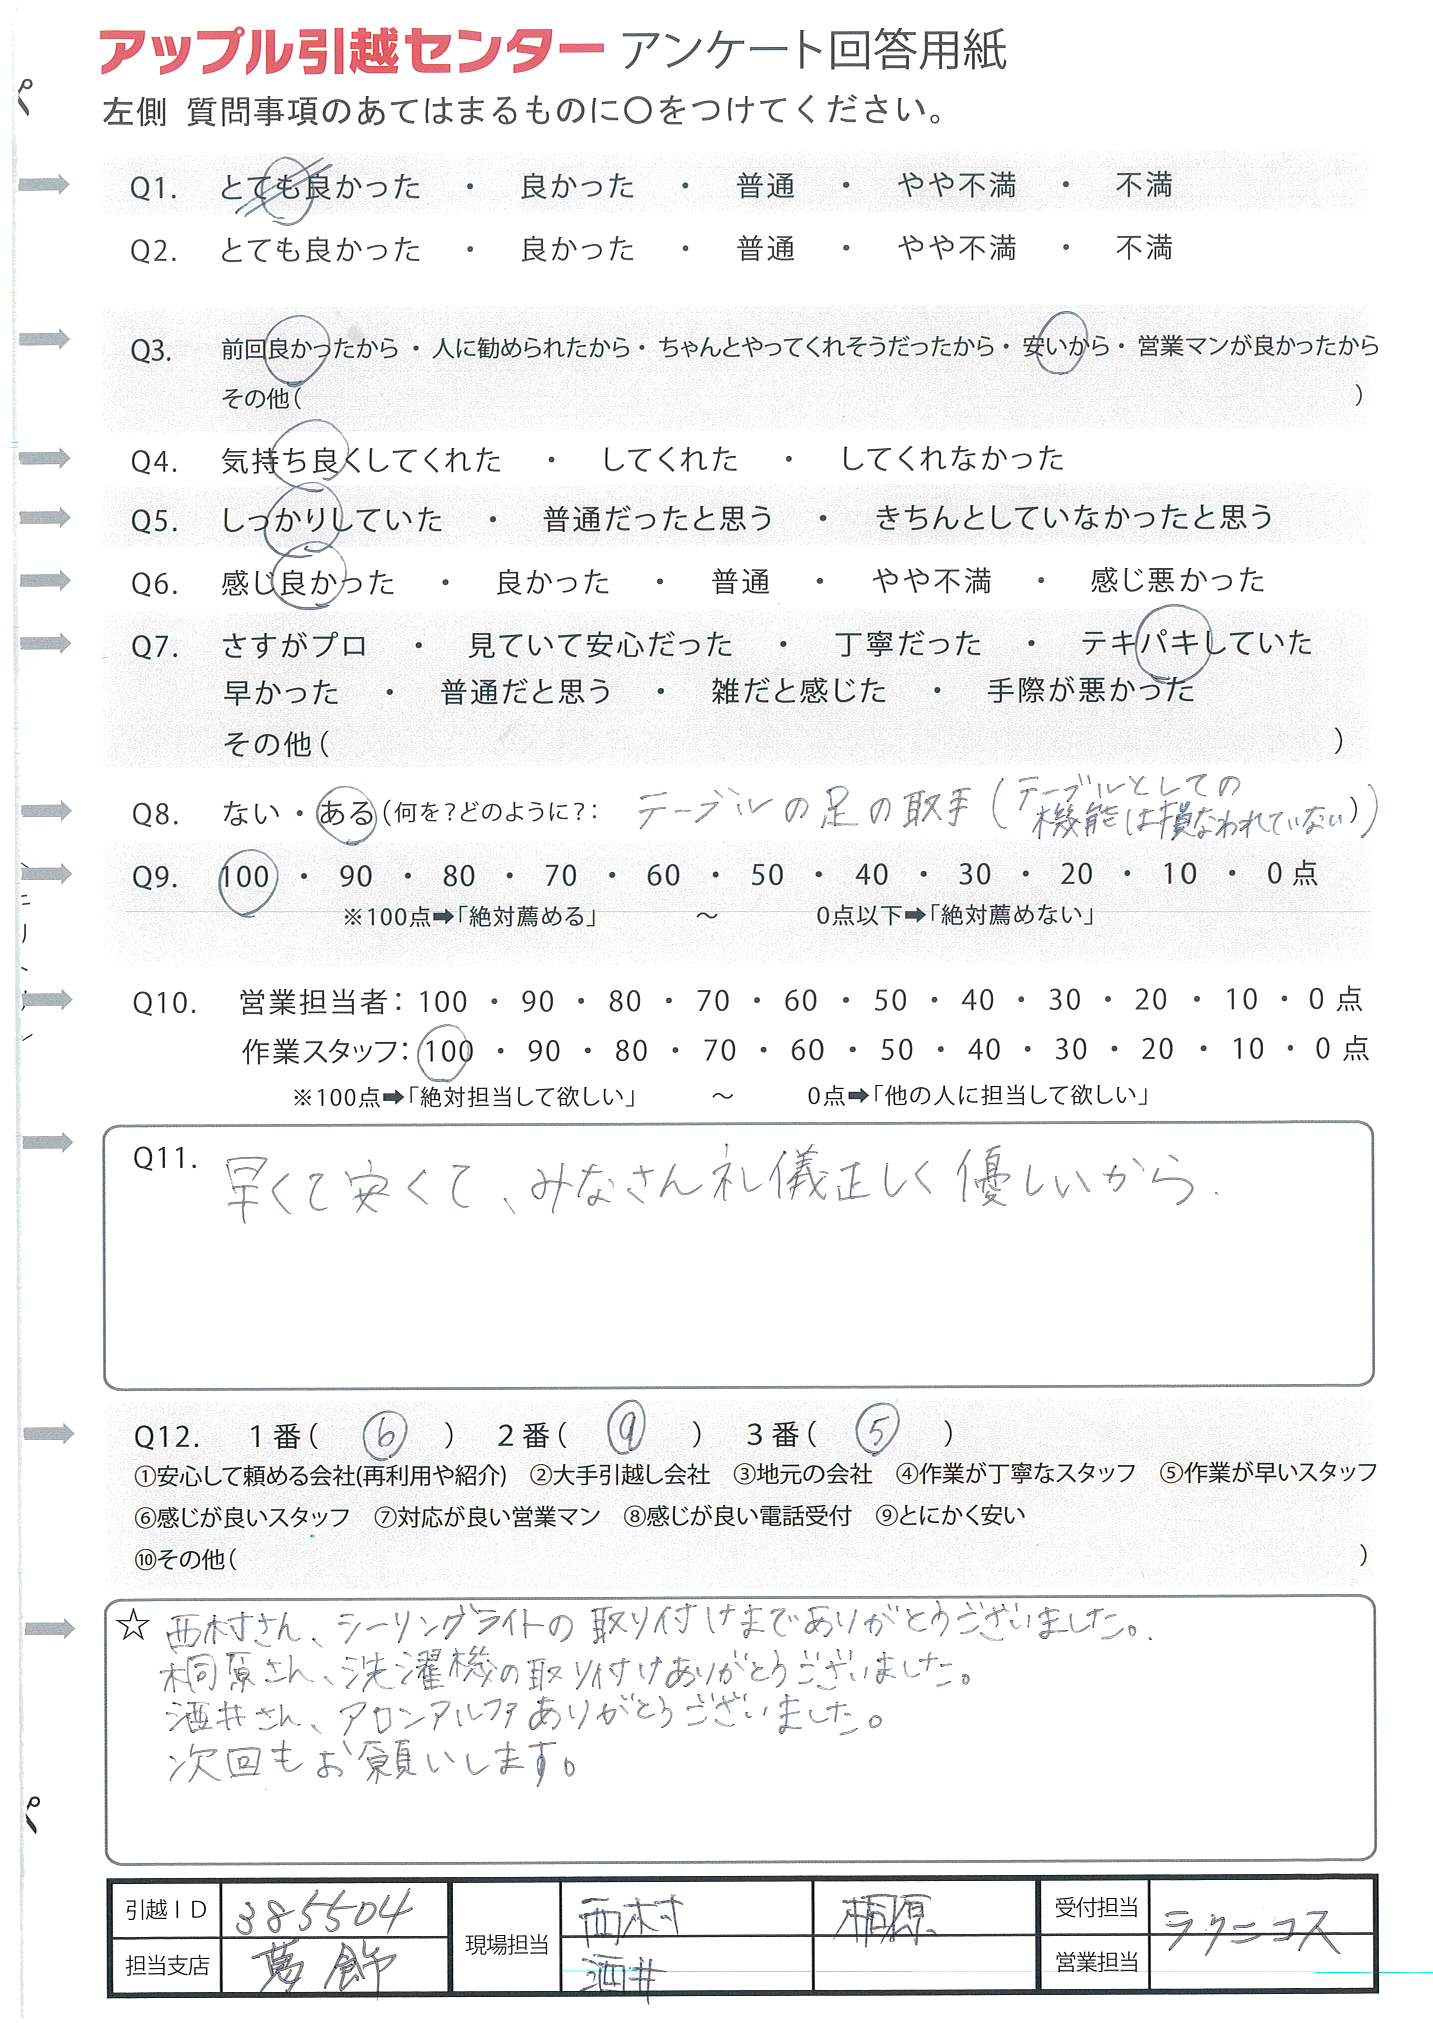 アップル引越センター アンケート回答用紙
左側 質問事項のあてはまるものに〇をつけてください。
Q1. とても良かった ・ 良かった ・ 普通 ・ やや不満 ・ 不満
Q2. とても良かった ・ 良かった ・ 普通 ・ やや不満 ・ 不満
Q3. 前回良かったから ・ 人に勧められたから ・ ちゃんとやってくれそうだったから ・ 安いから ・ 営業マンが良かったから
その他( )
Q4. 気持ち良くしてくれた ・ してくれた ・ してくれなかった
Q5. しっかりしていた ・ 普通だったと思う ・ きちんとしていなかったと思う
Q6. 感じ良かった ・ 良かった ・ 普通 ・ やや不満 ・ 感じ悪かった
Q7. さすがプロ ・ 見ていて安心だった ・ 丁寧だった ・ テキパキしていた
早かった ・ 普通だと思う ・ 雑だと感じた ・ 手際が悪かった
その他( )
Q8. ない ・ ある (何を?どのように?: テーブルの足の取手(テーブルとしての機能は損なわれていない))
Q9. 100 ・ 90 ・ 80 ・ 70 ・ 60 ・ 50 ・ 40 ・ 30 ・ 20 ・ 10 ・ 0 点
※100点➡「絶対薦める」 ～ 0点以下➡「絶対薦めない」
Q10. 営業担当者: 100 ・ 90 ・ 80 ・ 70 ・ 60 ・ 50 ・ 40 ・ 30 ・ 20 ・ 10 ・ 0 点
作業スタッフ: 100 ・ 90 ・ 80 ・ 70 ・ 60 ・ 50 ・ 40 ・ 30 ・ 20 ・ 10 ・ 0 点
※100点➡「絶対担当して欲しい」 ～ 0点➡「他の人に担当して欲しい」
Q11. 早くて安くて、みなさん礼儀正しく優しいから.
Q12. 1番( ⑥ ) 2番( ⑨ ) 3番( ⑤ )
①安心して頼める会社(再利用や紹介) ②大手引越し会社 ③地元の会社 ④作業が丁寧なスタッフ ⑤作業が早いスタッフ
⑥感じが良いスタッフ ⑦対応が良い営業マン ⑧感じが良い電話受付 ⑨とにかく安い
⑩その他( )
☆ 西村さん、シーリングライトの取り付けまでありがとうございました。
桐原さん、洗濯機の取り付けありがとうございました。
酒井さん、アロンアルファありがとうございました。
次回もお願いします。
引越ID 385504 現場担当 西村 桐原 受付担当 ラクニコス
担当支店 葛飾 酒井 営業担当